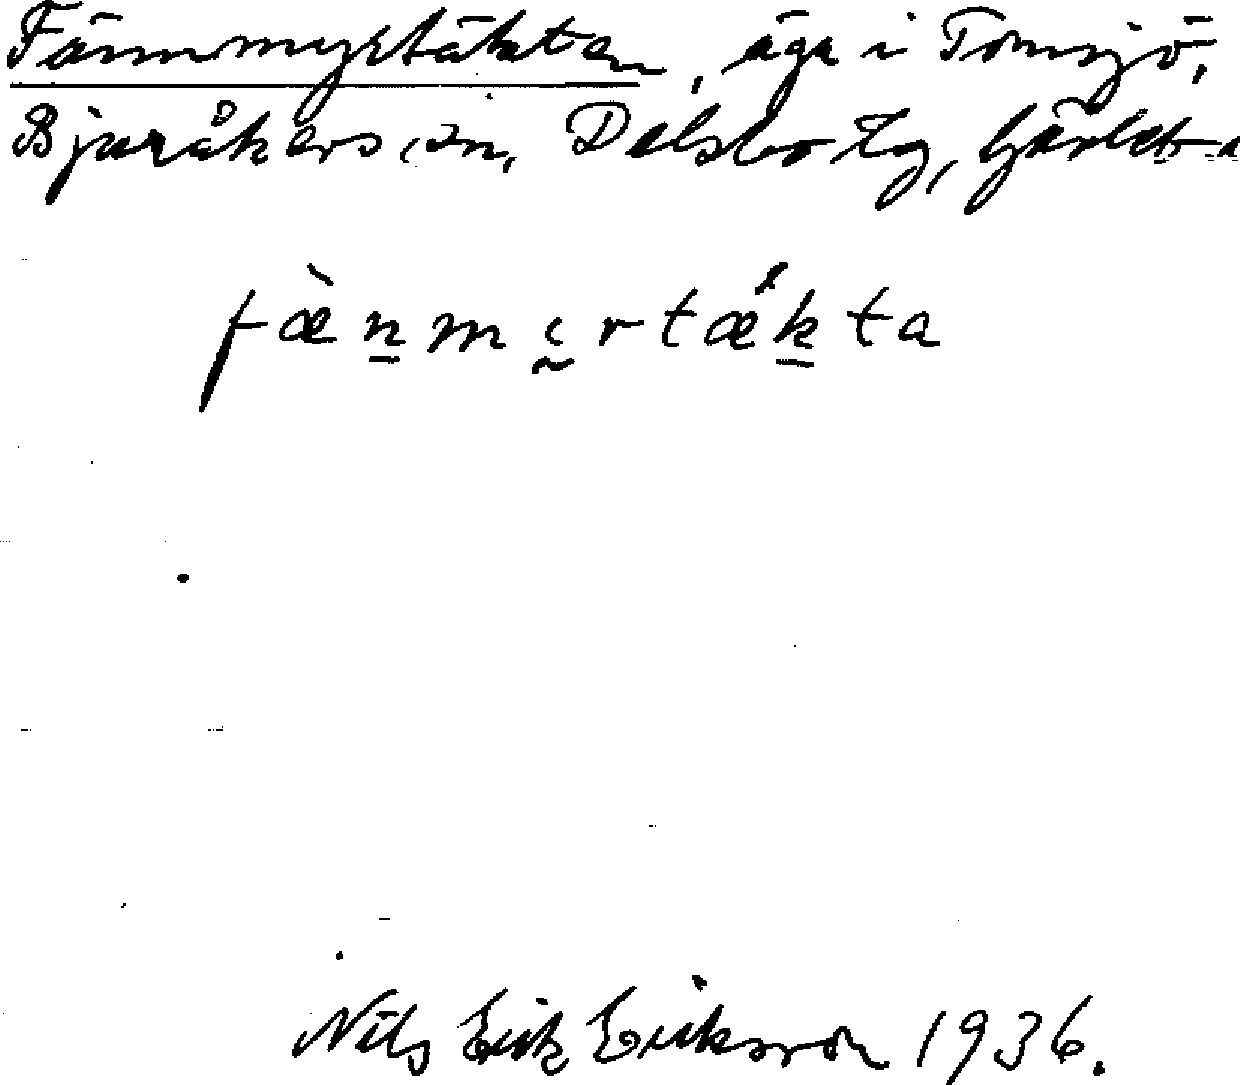 Fännmyrtäkten, äga i Tomsjö,
Bjuråkers sn, Delsbo tg, Gävleb
fæ̀nmɩrtǽkta
Nils Erik Eriksson 1936.